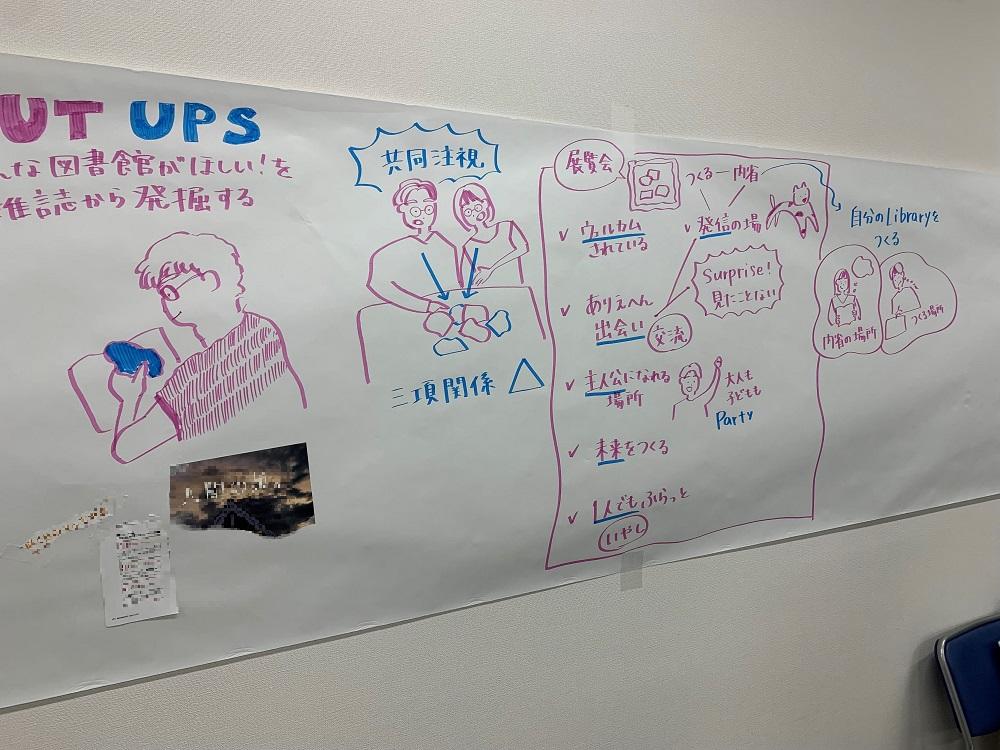 UT UPS
んな図書館がほしい!を
雑誌から発掘する
共同注視
三項関係
展覧会
つくる─内省
✓ ウェルカム
されている
✓ 発信の場
Surprise!
見たことない
✓ ありえへん
出会い
交流
✓ 主人公になれる
場所
大人も
子どもも
Party
✓ 未来をつくる
✓ 1人でもふらっと
いやし
自分のLibraryを
つくる
内省の場所
つくる場所